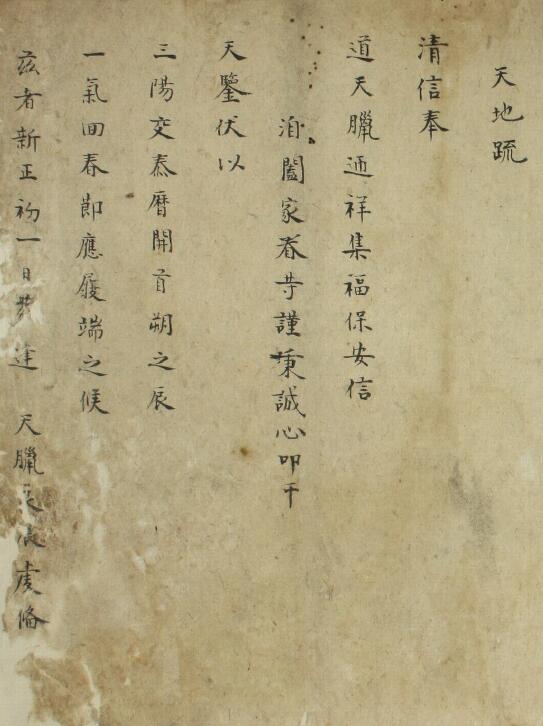 天地疏
清信奉
道天臘迊祥集福保安信
洎闔家眷等謹秉誠心叩干
天鑒伏以
三陽交泰曆開首朔之辰
一氣回春節應履端之候
茲者新正初一日恭逢 天臘辰良虔俻